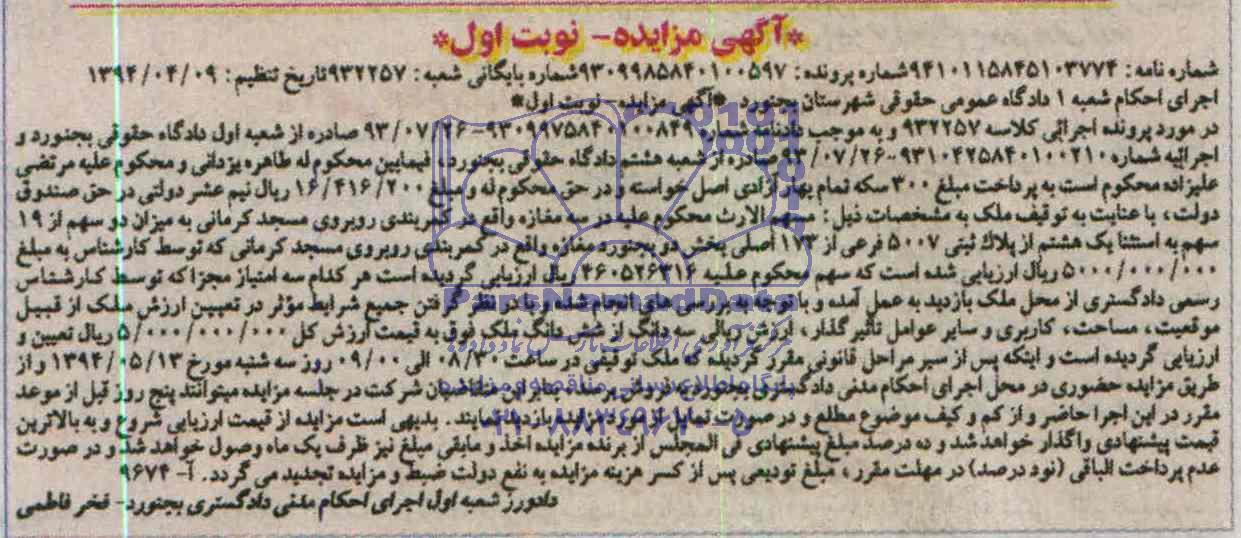 *آگهی مزایده- نوبت اول*
شماره نامه: ۹۴۱۰۱۱۵۸۴۵۱۰۳۷۷۴شماره پرونده: ۹۳۰۹۹۸۵۸۴۰۱۰۰۵۹۷شماره بایگانی شعبه: ۹۳۲۲۵۷تاریخ تنظیم: ۱۳۹۴/۰۴/۰۹
اجرای احکام شعبه ۱ دادگاه عمومی حقوقی شهرستان بجنورد *آگهی مزایده-نوبت اول*
در مورد پرونده اجرائی کلاسه ۹۳۲۲۵۷ و به موجب دادنامه شماره ۹۳۰۹۹۷۵۸۴۰۱۰۰۸۴۹-۹۳/۰۷/۲۶ صادره از شعبه اول دادگاه حقوقی بجنورد و
اجرائیه شماره ۹۳۱۰۴۲۵۸۴۰۱۰۰۲۱۰-۹۳/۰۷/۲۶ صادره از شعبه هشتم دادگاه حقوقی بجنورد، فیمابین محکوم له طاهره یزدانی و محکوم علیه مرتضی
علیزاده محکوم است به پرداخت مبلغ ۳۰۰ سکه تمام بهار آزادی اصل خواسته و در حق محکوم له و مبلغ ۱۶/۴۱۶/۲۰۰ ریال نیم عشر دولتی در حق صندوق
دولت، با عنایت به توقیف ملک به مشخصات ذیل: سهم الارث محکوم علیه در سه مغازه واقع در کمربندی روبروی مسجد کرمانی به میزان دو سهم از ۱۹
سهم به استثنا یک هشتم از پلاک ثبتی ۵۰۰۷ فرعی از ۱۷۳ اصلی بخش دو بجنورد مغازه واقع در کمربندی روبروی مسجد کرمانی که توسط کارشناس به مبلغ
۵۰۰۰/۰۰۰/۰۰۰ ریال ارزیابی شده است که سهم محکوم علیه ۴۶۰۵۲۶۳۱۶ ریال ارزیابی گردیده است هر کدام سه امتیاز مجزا که توسط کارشناس
رسمی دادگستری از محل ملک بازدید به عمل آمده و با توجه به بررسی های انجام شده و با در نظر گرفتن جمیع شرایط مؤثر در تعیین ارزش ملک از قبیل
موقعیت، مساحت، کاربری و سایر عوامل تأثیرگذار، ارزش ریالی سه دانگ از شش دانگ ملک فوق به قیمت ارزش کل ۵/۰۰۰/۰۰۰/۰۰۰ ریال تعیین و
ارزیابی گردیده است و اینکه پس از سیر مراحل قانونی مقرر گردیده که ملک توقیفی در ساعت ۰۸/۳۰ الی ۰۹/۰۰ روز سه شنبه مورخ ۱۳۹۴/۰۵/۱۳ و از
طریق مزایده حضوری در محل اجرای احکام مدنی دادگستری بجنورد به فروش برسد. بنابراین متقاضیان شرکت در جلسه مزایده میتوانند پنج روز قبل از موعد
مقرر در این اجرا حاضر و از کم و کیف موضوع مطلع و در صورت تمایل از مورد مزایده بازدید نمایند. بدیهی است مزایده از قیمت ارزیابی شروع و به بالاترین
قیمت پیشنهادی واگذار خواهد شد و ده درصد مبلغ پیشنهادی فی المجلس از برنده مزایده اخذ و مابقی مبلغ نیز ظرف یک ماه وصول خواهد شد و در صورت
عدم پرداخت الباقی (نود درصد) در مهلت مقرر، مبلغ تودیعی پس از کسر هزینه مزایده به نفع دولت ضبط و مزایده تجدید می گردد. آ- ۹۶۷۴
دادورز شعبه اول اجرای احکام مدنی دادگستری بجنورد- فخر فاطمی